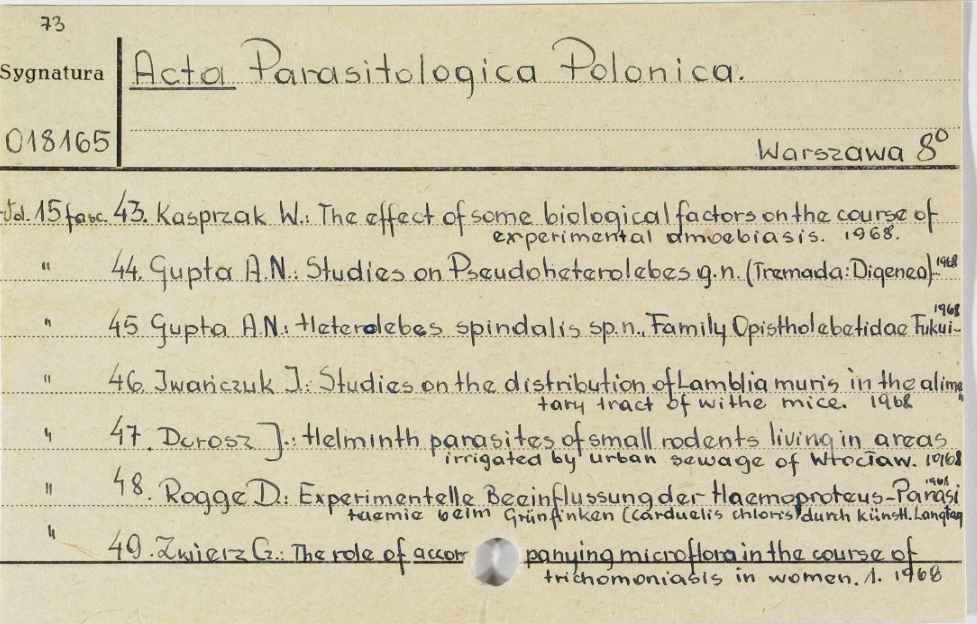 73
Sygnatura
Acta Parasitologica Polonica.
018165
Warszawa 8°
Vol. 15 fasc. 43. Kasprzak W.: The effect of some biological factors on the course of
experimental amoebiasis. 1968.
" 44. Gupta A.N.: Studies on Pseudoheterolebes g.n. (Tremada: Digenea). 1968
" 45 Gupta A.N.: Heterolebes spindalis sp.n., Family Opistholebetidae Fukui- 1968
" 46. Iwańczuk I.: Studies on the distribution of Lamblia muris in the alime
tary tract of withe mice. 1968
" 47. Dorosz J.: Helminth parasites of small rodents living in areas
irrigated by urban sewage of Wrocław. 1968
" 48. Rogge D.: Experimentelle Beeinflussung der Haemoproteus-Parasi 1968
taemie beim Grünfinken (Carduelis chloris) durch künstl. Langtag
" 49. Zwierz C.: The role of accom panying microflora in the course of
trichomoniasis in women. 1. 1968